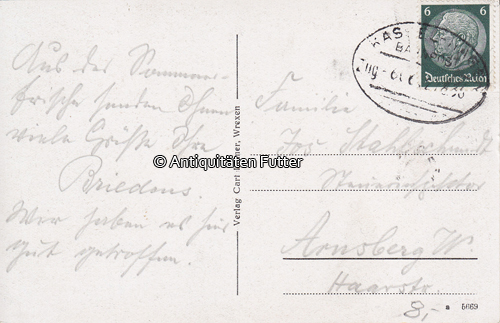 Aus der Sommer-
frische senden Ihnen
viele Grüße Ihre
Briedens.
Wir haben es hier
gut getroffen.
Verlag Carl Wrexen
© Antiquitäten Futter
6 6
Deutsches Reich
KASSEL
Zug
Familie
Jos. Stahlschmidt
Arnsberg W.
Haarstr.
8,-
a 5669